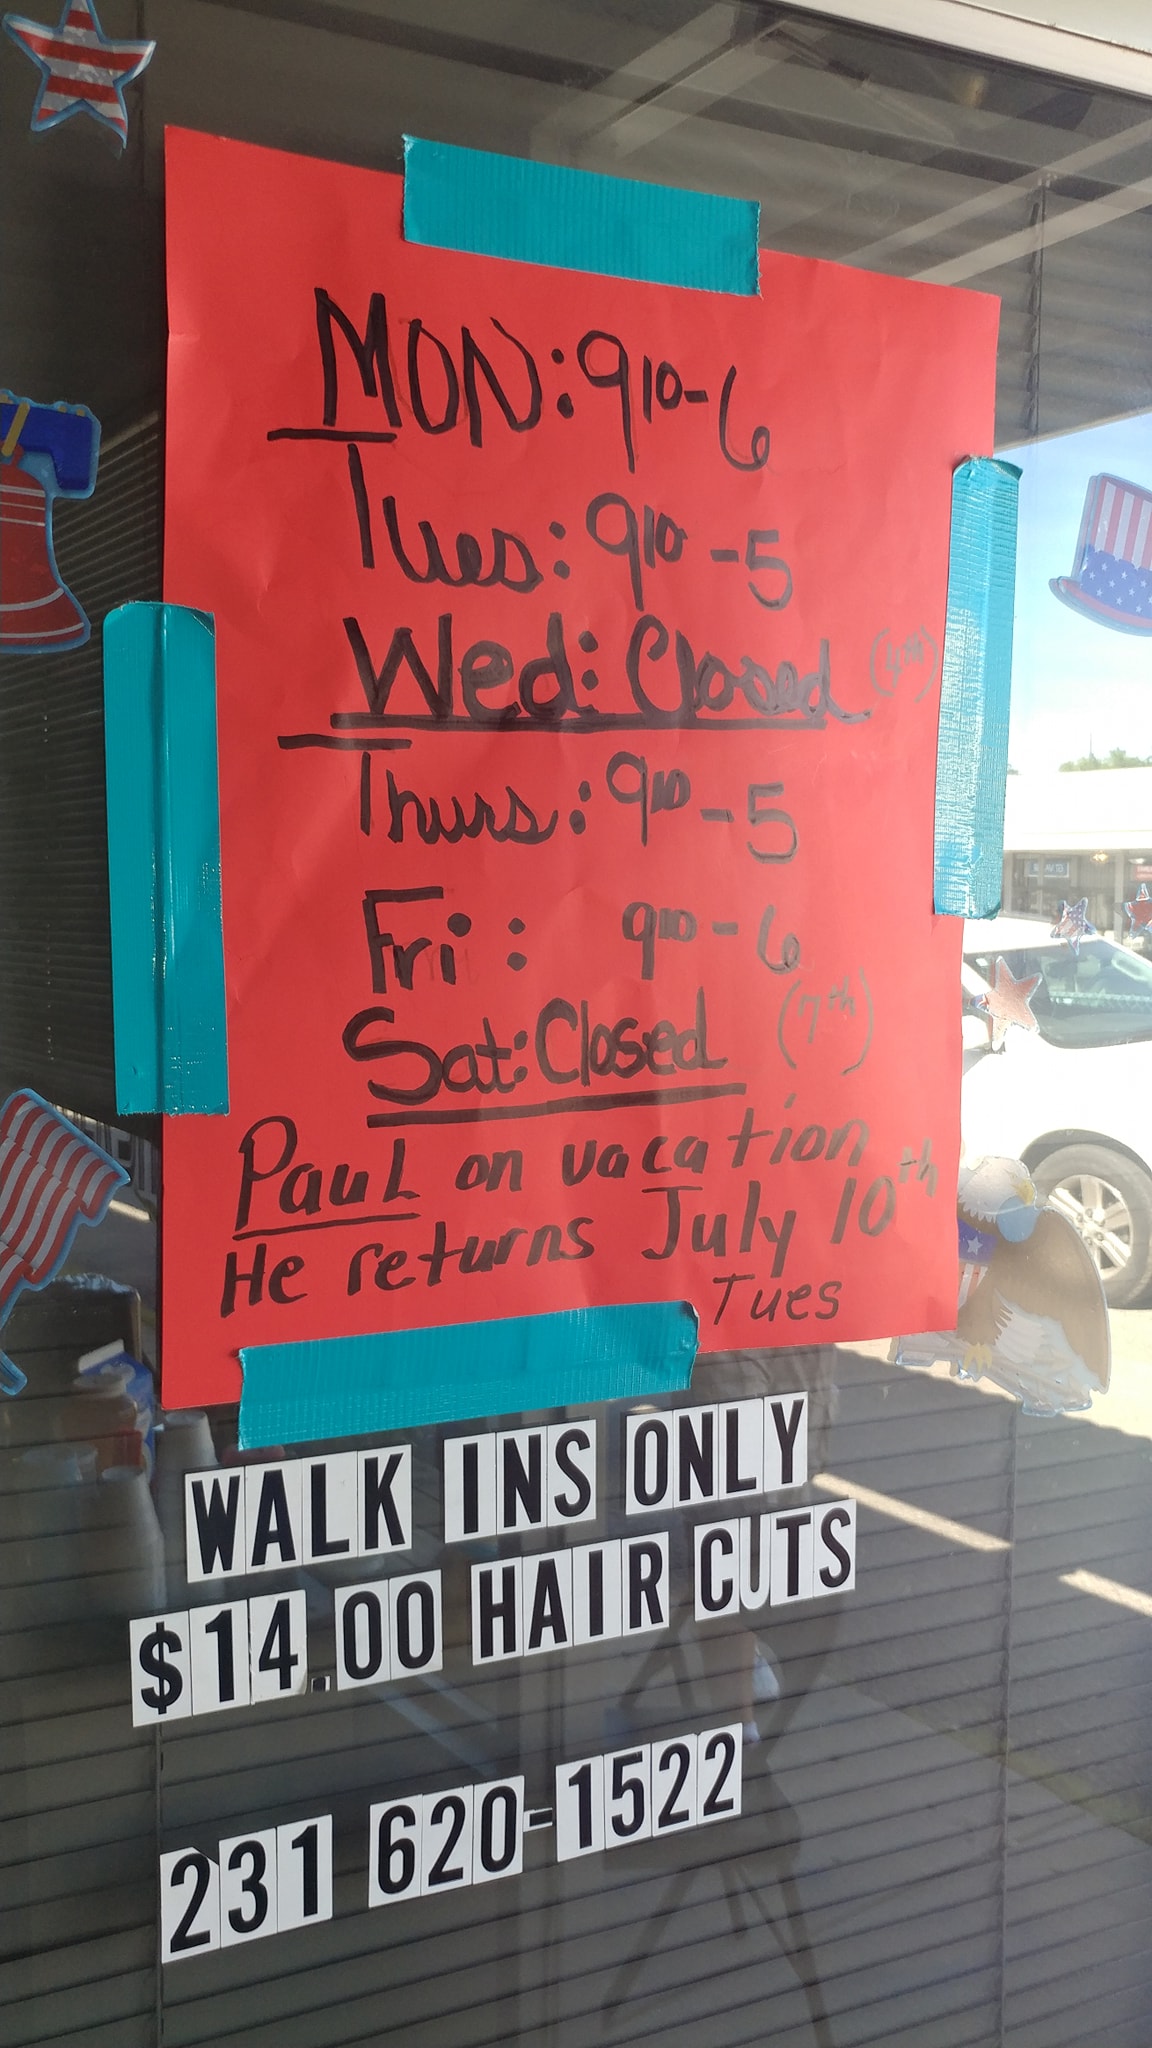 MON: 9¹⁰-6
Tues: 9¹⁰-5
Wed: Closed (4th)
Thurs: 9¹⁰-5
Fri: 9¹⁰-6
Sat: Closed (7th)
Paul on vacation
He returns July 10th
Tues
WALK INS ONLY
$14.00 HAIR CUTS
231 620-1522